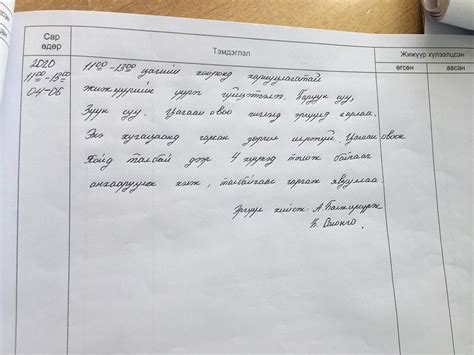 Сар өдөр
Тэмдэглэл
Жижүүр хүлээлцсэн
өгсөн
авсан
2020
11⁰⁰-13⁰⁰
04-06
11⁰⁰-13⁰⁰ цагийн хооронд хариуцлагатай
жижүүрийн үүрэг гүйцэтгэв. Баруун суу,
Зүүн суу. Цагаан овоо чиглэлд эргүүлд гарлаа.
Энэ хугацаанд гарсан зөрчил илрээгүй. Цагаан овооны
хойд талбай дээр 4 хүүхэд тоглож байгааг
анхааруулж хэлж, талбайгаас гаргаж явууллаа.
Эргүүл хийсэн: А.
Б.